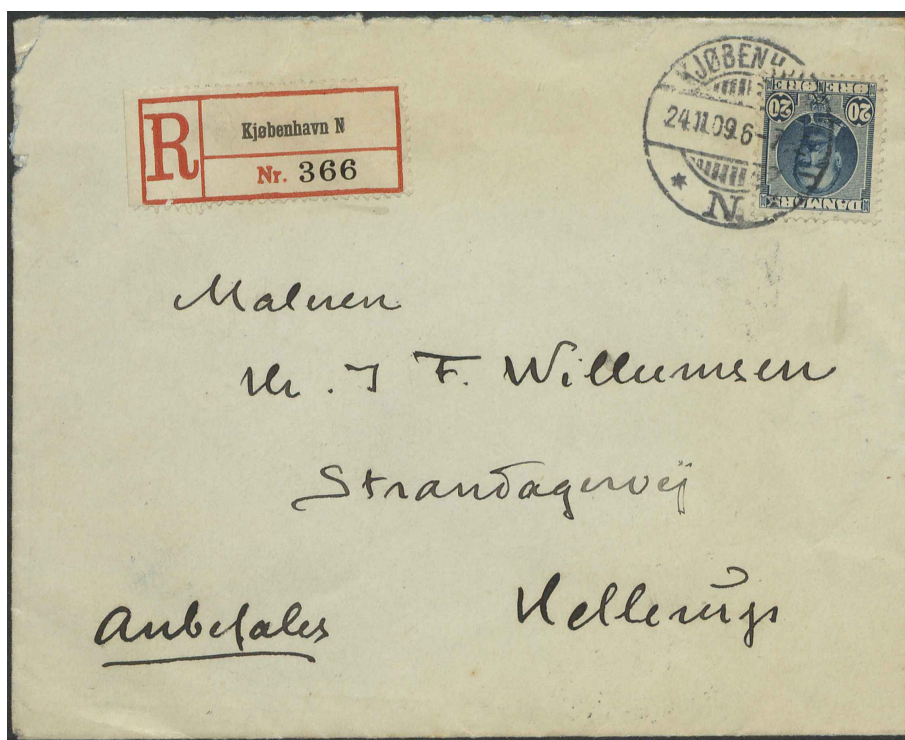 R Kjøbenhavn N
Nr. 366
KJØBENH
24.11.09.6-
N.
20 ØRE 20 ØRE
DANMARK
Maleren
Hr. J F. Willumsen
Strandagervej
Hellerup
Anbefales